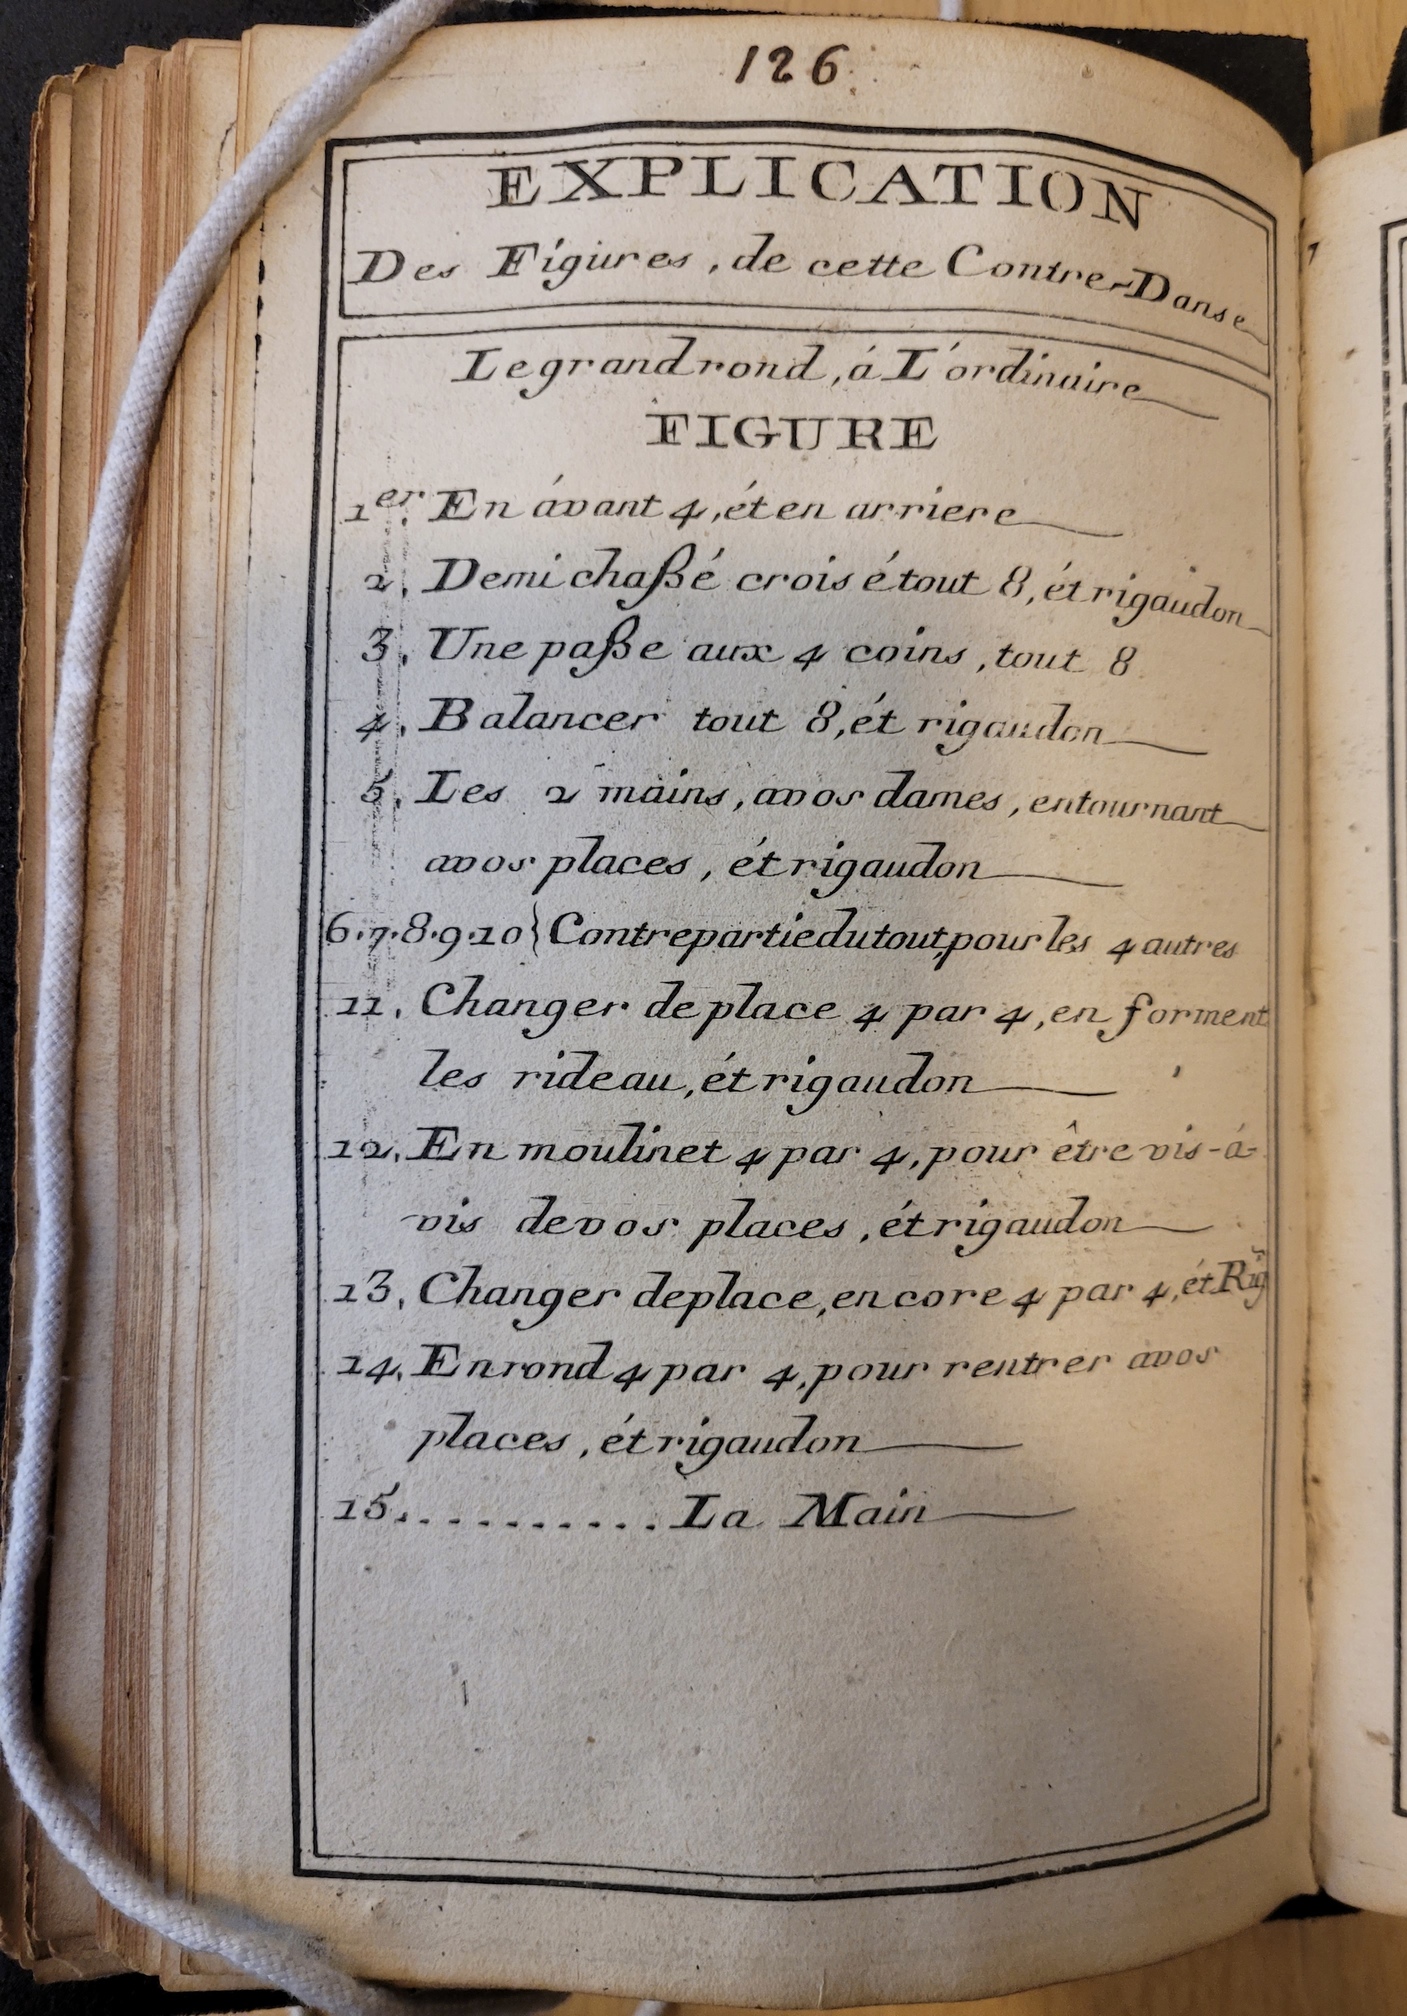 126.
EXPLICATION
Des Figures, de cette Contre-Danse
Le grand rond, á L'ordinaire
FIGURE
1er. En ávant 4, ét en arriere
2. Demi chaßé croisé tout 8, ét rigaudon
3. Une paße aux 4 coins, tout 8
4. Balancer tout 8, ét rigaudon
5. Les 2 mains, avos dames, entournant
avos places, ét rigaudon
6.7.8.9.10} Contrepartie du tout, pour les 4 autres
11. Changer de place 4 par 4, en forment
les rideau, ét rigaudon
12. En moulinet 4 par 4, pour être vis-á-
vis devos places, ét rigaudon
13. Changer deplace, encore 4 par 4, ét Rig
14. Enrond 4 par 4, pour rentrer avos
places, ét rigaudon
15. . . . . . . . . . . La Main